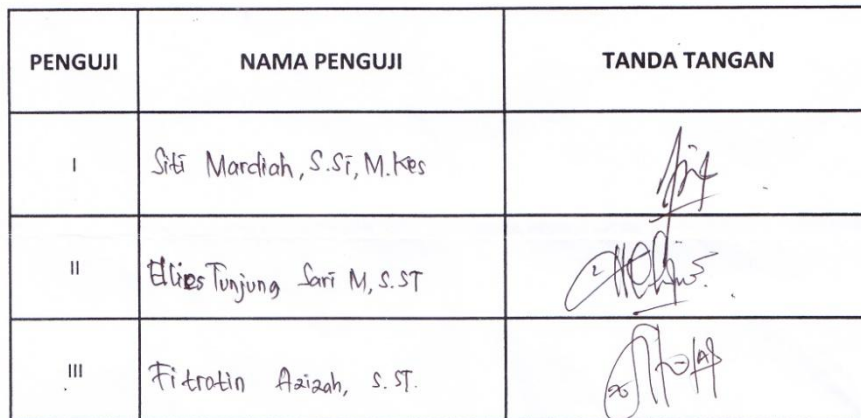 PENGUJI NAMA PENGUJI TANDA TANGAN
I Siti Mardiah, S.Si, M.Kes
II Ellies Tunjung Sari M, S.ST
III Fitrotin Azizah, S.ST.